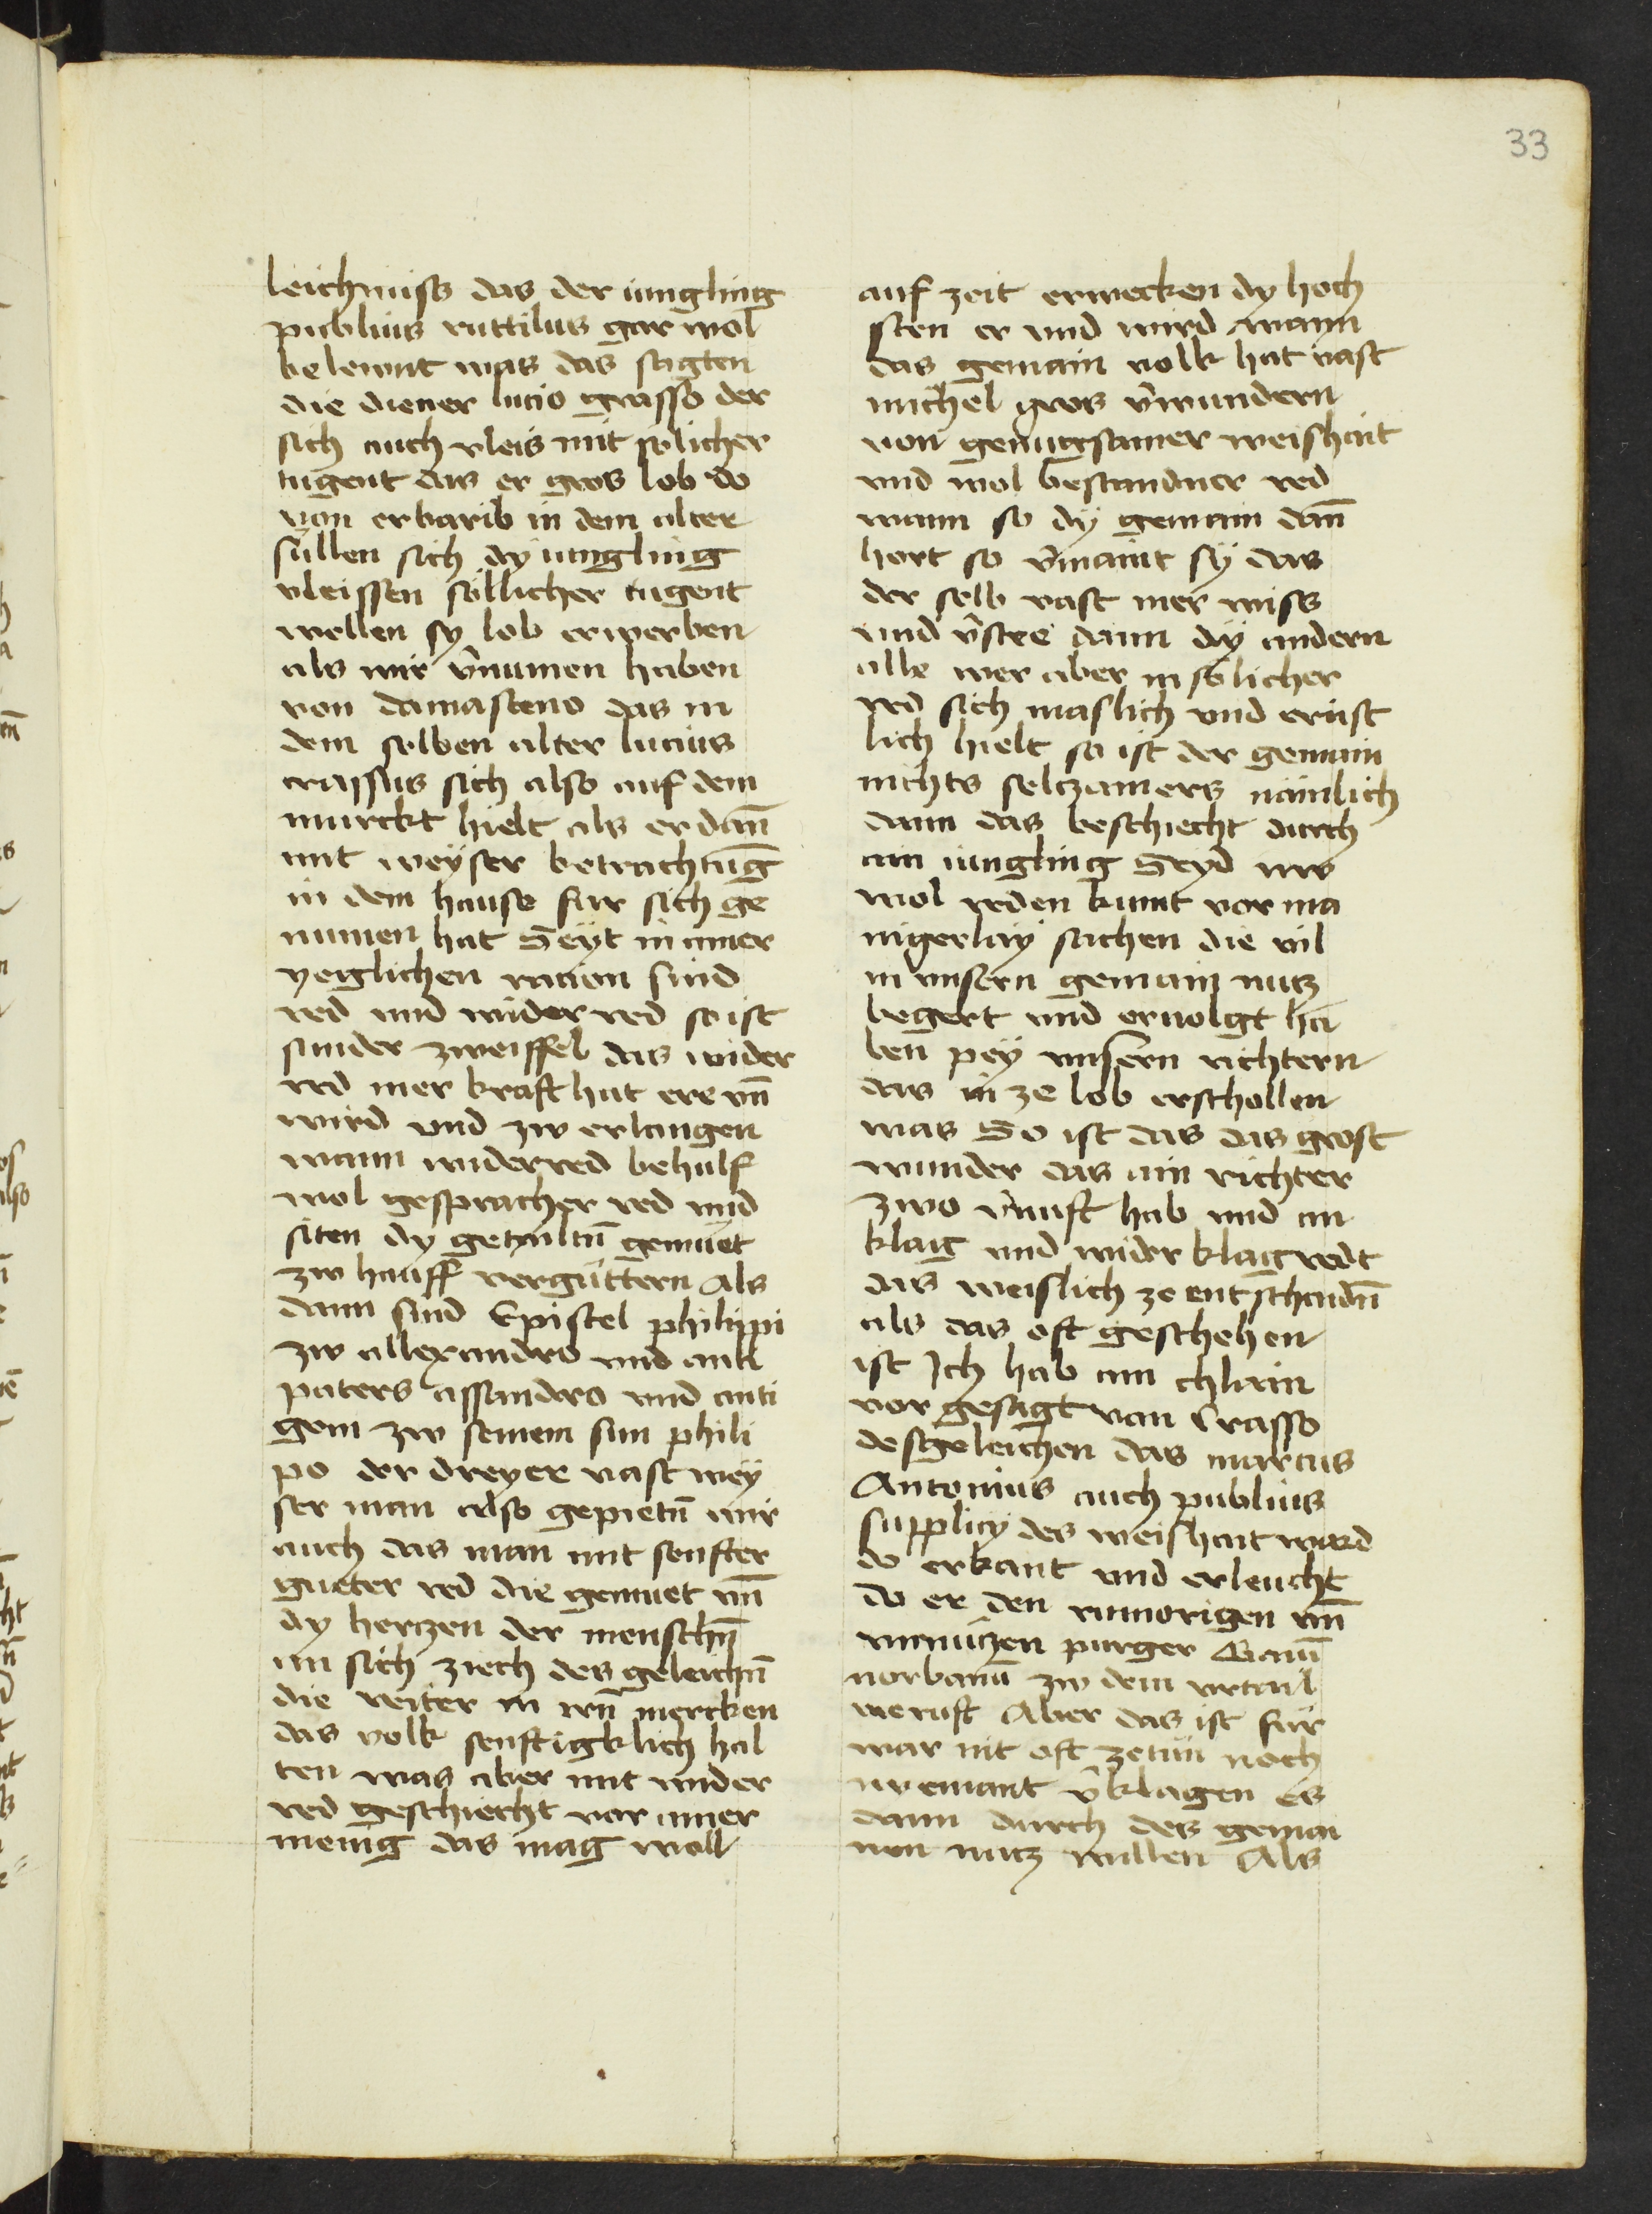 33
leichnuss das der iungling
publius ruttilus gar wol
belewnt was das sagten
die diener lucio grasso der
sich auch vleis mit solicher
tugent das er gros lob do
von erbarib in dem alter
sullen sich dy iungling
vleissen söllicher tugent
wellen sy lob erwerben
als wir v̄numen haben
von damasceno das in
dem selben alter lucius
crassus sich also auf dem
marckt hielt als er dan̄
mit weyser betrachtung
in dem hause fur sich ge
numen hat Seyt in ainer
yeiglichen racion sind
red und wider red so ist
sunder zweiffel das wider
red mer kraft hat ere vn̄
wird vnd zw erlangen
wann widerred behulf
wol gespracher red vnd
siten dy getailtn̄ gemuet
zw hauff vergüttern Als
dann sind Epistel philippi
zw allexandro vnd anti
paters assandro vnd anti
gem zw seinem sun phili
po der dreyer vast wey
ser man also gepietn̄ wir
auch das man mit senfter
gueter red die gemuet vn̄
dy hertzen der menschn̄
an sich ziech des geleichn̄
die reiter in irn̄ mercken
das volk senftigklich hal
ten was aber mit wider
red geschiecht vor ainer
menig das mag woll
auf zeit erwecken dy hoch
sten er und wird wann
das gemain volk hat vast
michel gros v̄wundern
von genuegsamer weishait
vnd wol bestandner red
wann so dy gemain dan̄
hort so v̄maint sy das
der selb vast mer wiss
und v̄stee dann dy andern
alle wer aber in solicher
red sich maslich und ernst
lich hielt so ist der gemain
nichts seltzamers nämlich
dann das beschiecht durch
ain iungling Seyd nw
wol reden kumt vor ma
nigerlay sachen die vil
in vnsern gemain nutz
begert und ervolgt ha
ben pey vnsern richtern
das in ze lob erschollen
was So ist das das grost
wunder das ain richter
zwo v̄nuft hab und an
klag und wider klag redt
das weislich ze entschaidn̄
als das oft geschehen
ist Ich hab ain chlain
vor gesagt van Crasso
desgeleichen das marcus
Antonius auch publius
supplicy des weishait ward
do erkant und erleucht
do er den rumorigen vn̄
vnnützen purger Gaiū
norbanū zw dem vrtail
weruft Aber das ist für
war nit oft zetün noch
nyemant v̄klagen es
dann durch des gemai
nen nutz willen Als